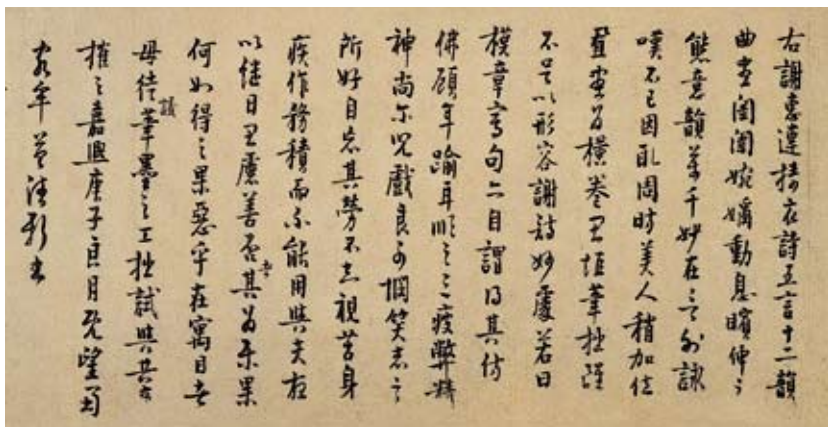 右謝惠連擣衣詩五言十二韻
曲盡閨閤婉孌動息矉伸之
態意韻萬千妙在言外詠
嘆不已因取周昉美人稍加位
置畫為橫卷思恇筆拙雖
不足以形容謝詩妙處若曰
模章寫句亦自謂得其仿
佛顧年踰耳順之三疲弊精
神尚爾兒戲良可憫笑志之
所好自忘其勞不知視苦身
疾作務積而不能用與夫夜
以繼日思慮善否者其為樂果
何如得之果惡乎在寓目者
毋徒議筆墨之工拙試與共商
搉之嘉熙庚子良月既望蜀
客牟益德新書